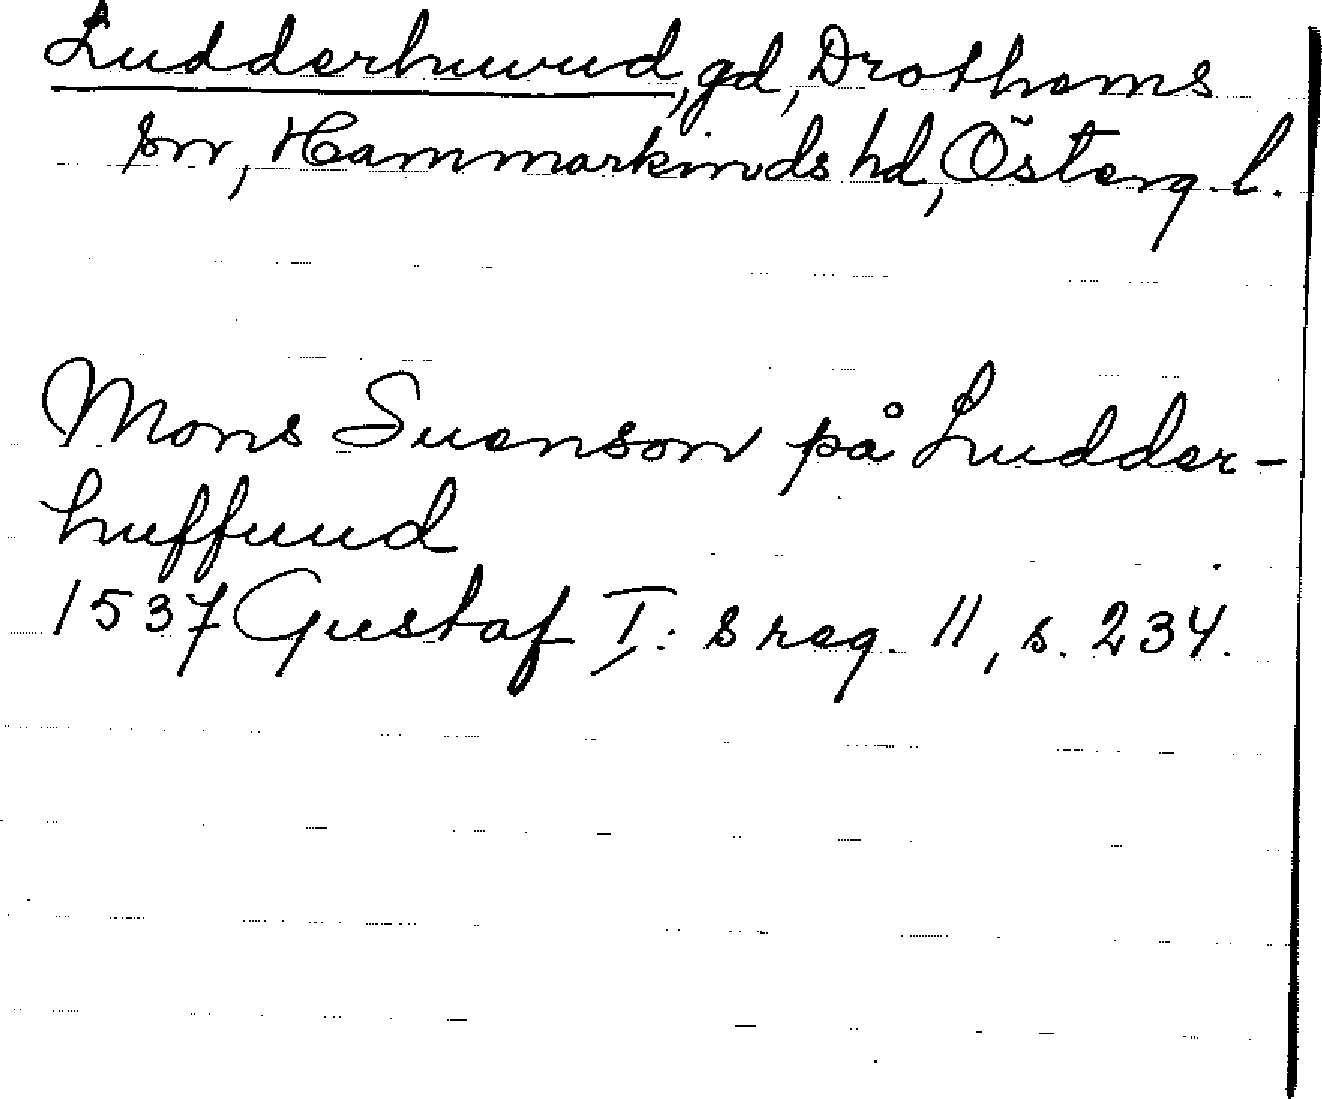 Ludderhuvud, gd, Drothems
sn, Hammarkinds hd, Österg. l.
Mons Suenson på Ludder-
huffuud
1537 Gustaf I:s reg. 11, s. 234.